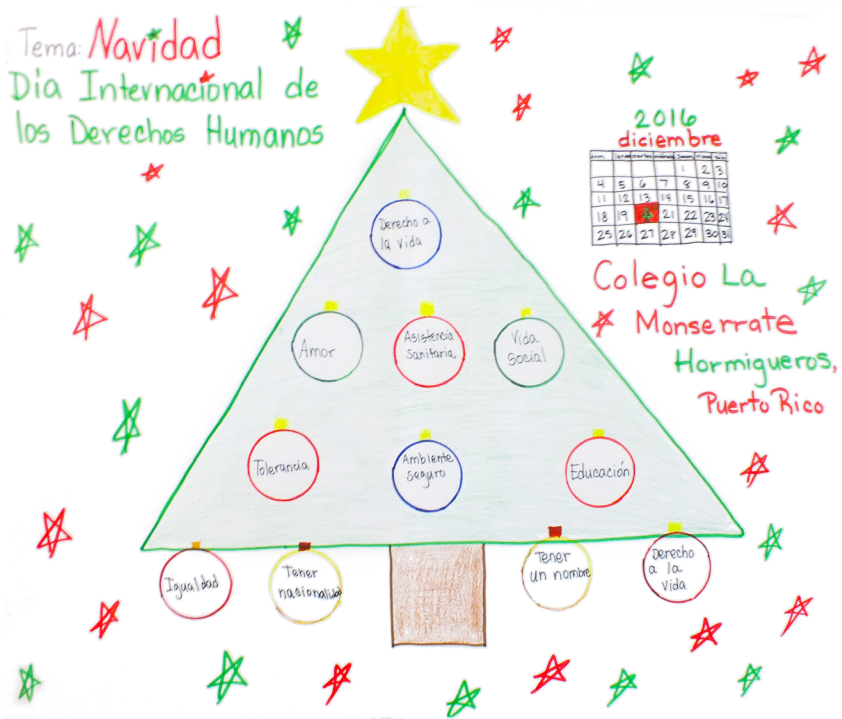 Tema: Navidad
Dia Internacional de
los Derechos Humanos
2016
diciembre
1 2 3
4 5 6 7 8 9 10
11 12 13 14 15 16 17
18 19 21 22 23 24
25 26 27 28 29 30 31
Colegio La
Monserrate
Hormigueros,
Puerto Rico
Derecho a
la vida
Amor
Asistencia
Sanitaria
Vida
Social
Tolerancia
Ambiente
seguro
Educación
Igualdad
Tener
nacionalidad
Tener
un nombre
Derecho
a la
vida